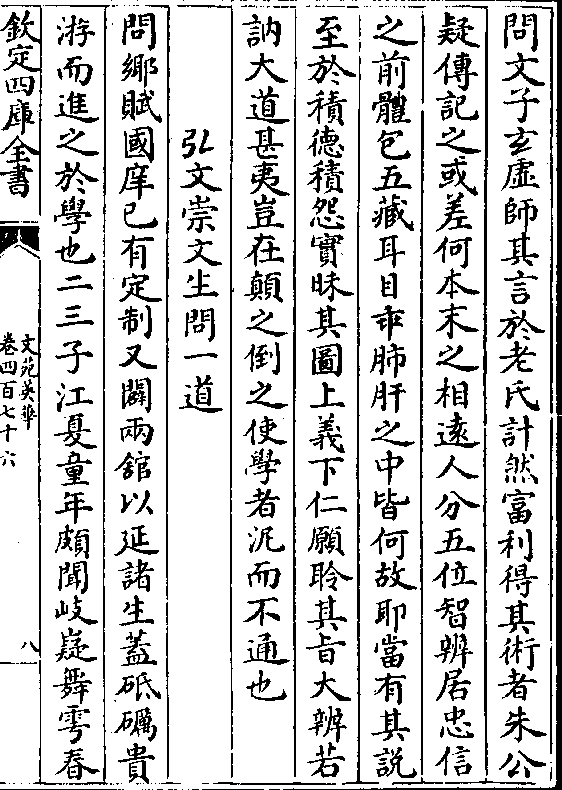 問文子玄虚師其言於老氏計然富利得其術者朱公
疑傳記之或差何本末之相遠人分五位智辨居忠信
之前體包五藏耳目乖肺肝之中皆何故耶當有其説
至於積德積怨實昧其圖上義下仁願聆其旨大辨若
訥大道甚夷豈在顛之倒之使學者泥而不通也
弘文崇文生問一道
問鄉賦國庠已有定制又闢兩舘以延諸生蓋砥礪貴
游而進之於學也二三子江夏童年頗聞岐嶷舞雩春
欽定四庫全書
文苑英華
卷四百七十六
八